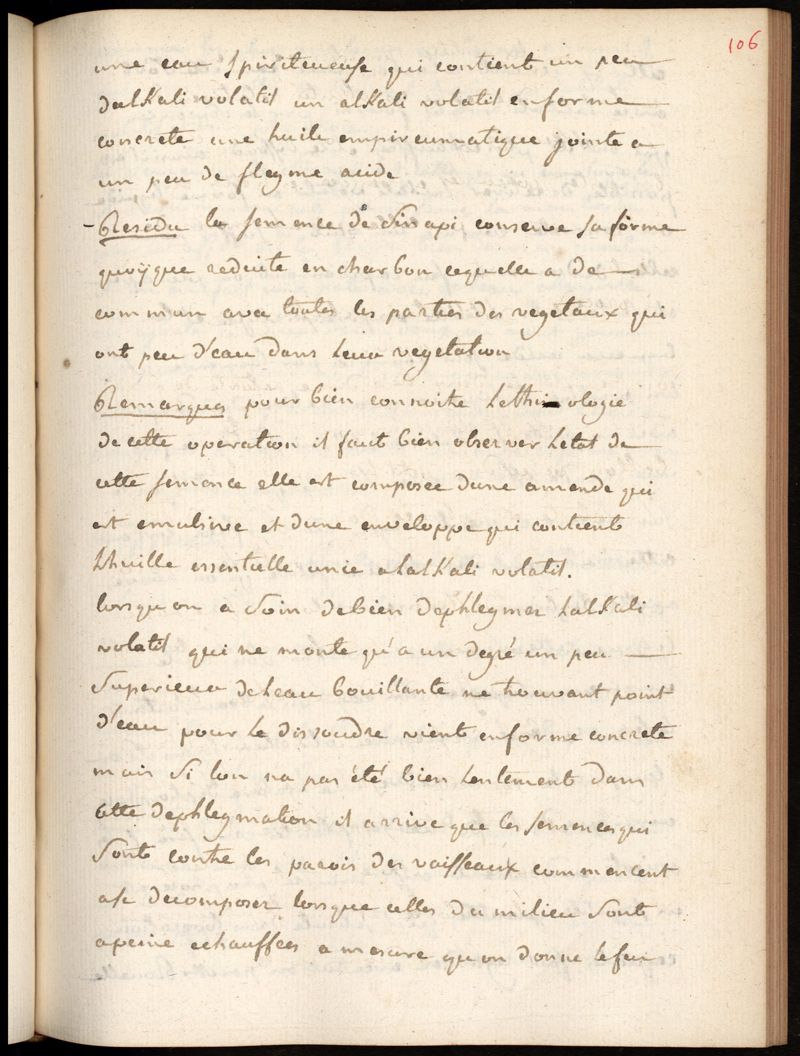 106
une eau spiritueuse qui contient un peu
dalkali volatil un alkali volatil enforme
concrete une huile empireumatique jointe a
un peu de flegme acide
Residu la semence de Sinapi conserve sa forme
quoÿque reduite en charbon cequelle a de
commun avec toutes les parties des vegetaux qui
ont peu d'eau dans leur vegetation
Remarques pour bien connoite Lethiologie
de cette operation il faut bien observer Letat de
cette semence elle est composée dune amende qui
est emulsive et dune enveloppe qui contient
Lhuille essentielle unie alalkali volatil.
lorsqu on a Soin debien dephlegmer Lalkali
volatil qui ne monte qu'a un degré un peu
Superieur deLeau bouillante ne trouvant point
d'eau pour Le dissoudre vient enforme concrete
mais Si lon na pas été bien Lentement dans
cette dephlegmation il arrive que les semences qui
Sont contre les parois des vaisseaux commencent
ase decomposer lorsque celles du milieu Sont
apeine echauffées a mesure qu on donne lefeu